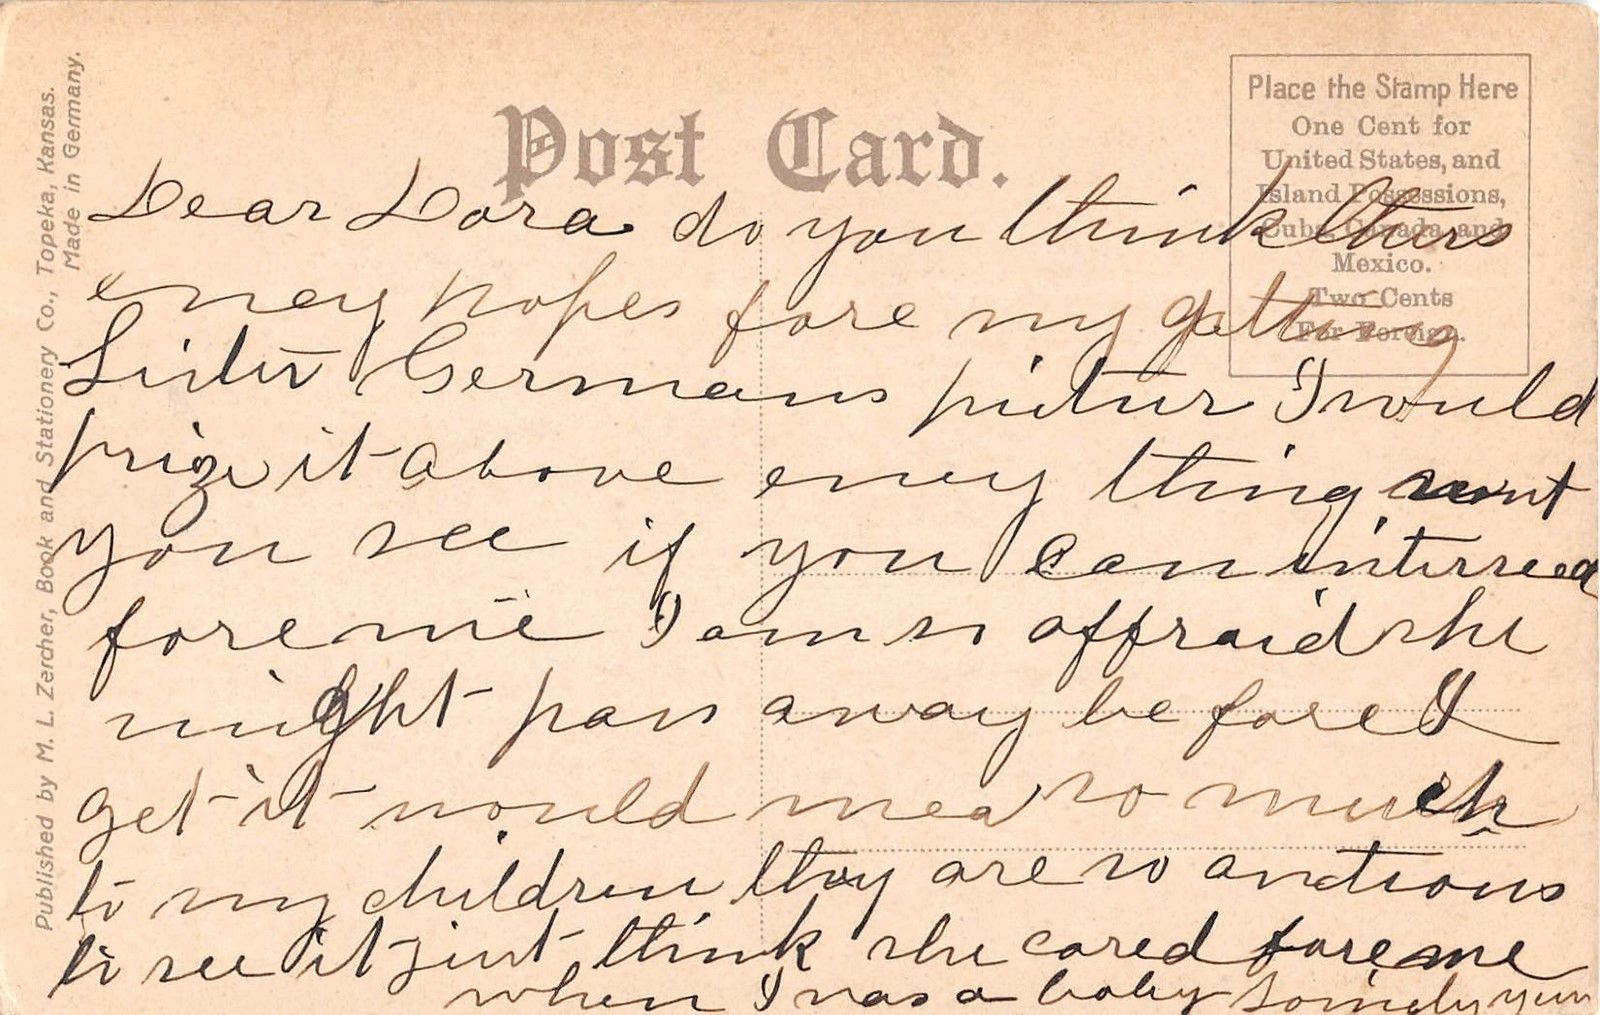 Post Card.
Place the Stamp Here
One Cent for
United States, and
Island Possessions,
Cuba, Canada, and
Mexico.
Two Cents
For Foreign.
Published by M. L. Zercher, Book and Stationery Co., Topeka, Kansas.
Made in Germany.
Dear Dora do you think thers
eney hopes fore my getting
Sister Germans pictur I would
prize it above eney thing wont
you see if you can interread
fore me I am so affraid she
might pass away be fore I
get it would mea so much
to my children they are so anctious
to see it just think she cared fore me
when I was a baby